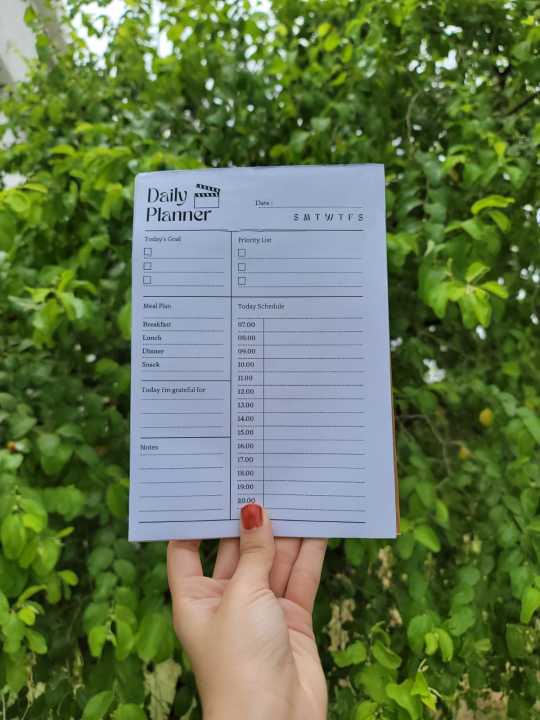 Daily
Planner
Date :
S M T W T F S
Today's Goal
Priority List
Meal Plan
Breakfast
Lunch
Dinner
Snack
Today i'm grateful for
Notes
Today Schedule
07.00
08.00
09.00
10.00
11.00
12.00
13.00
14.00
15.00
16.00
17.00
18.00
19.00
20.00